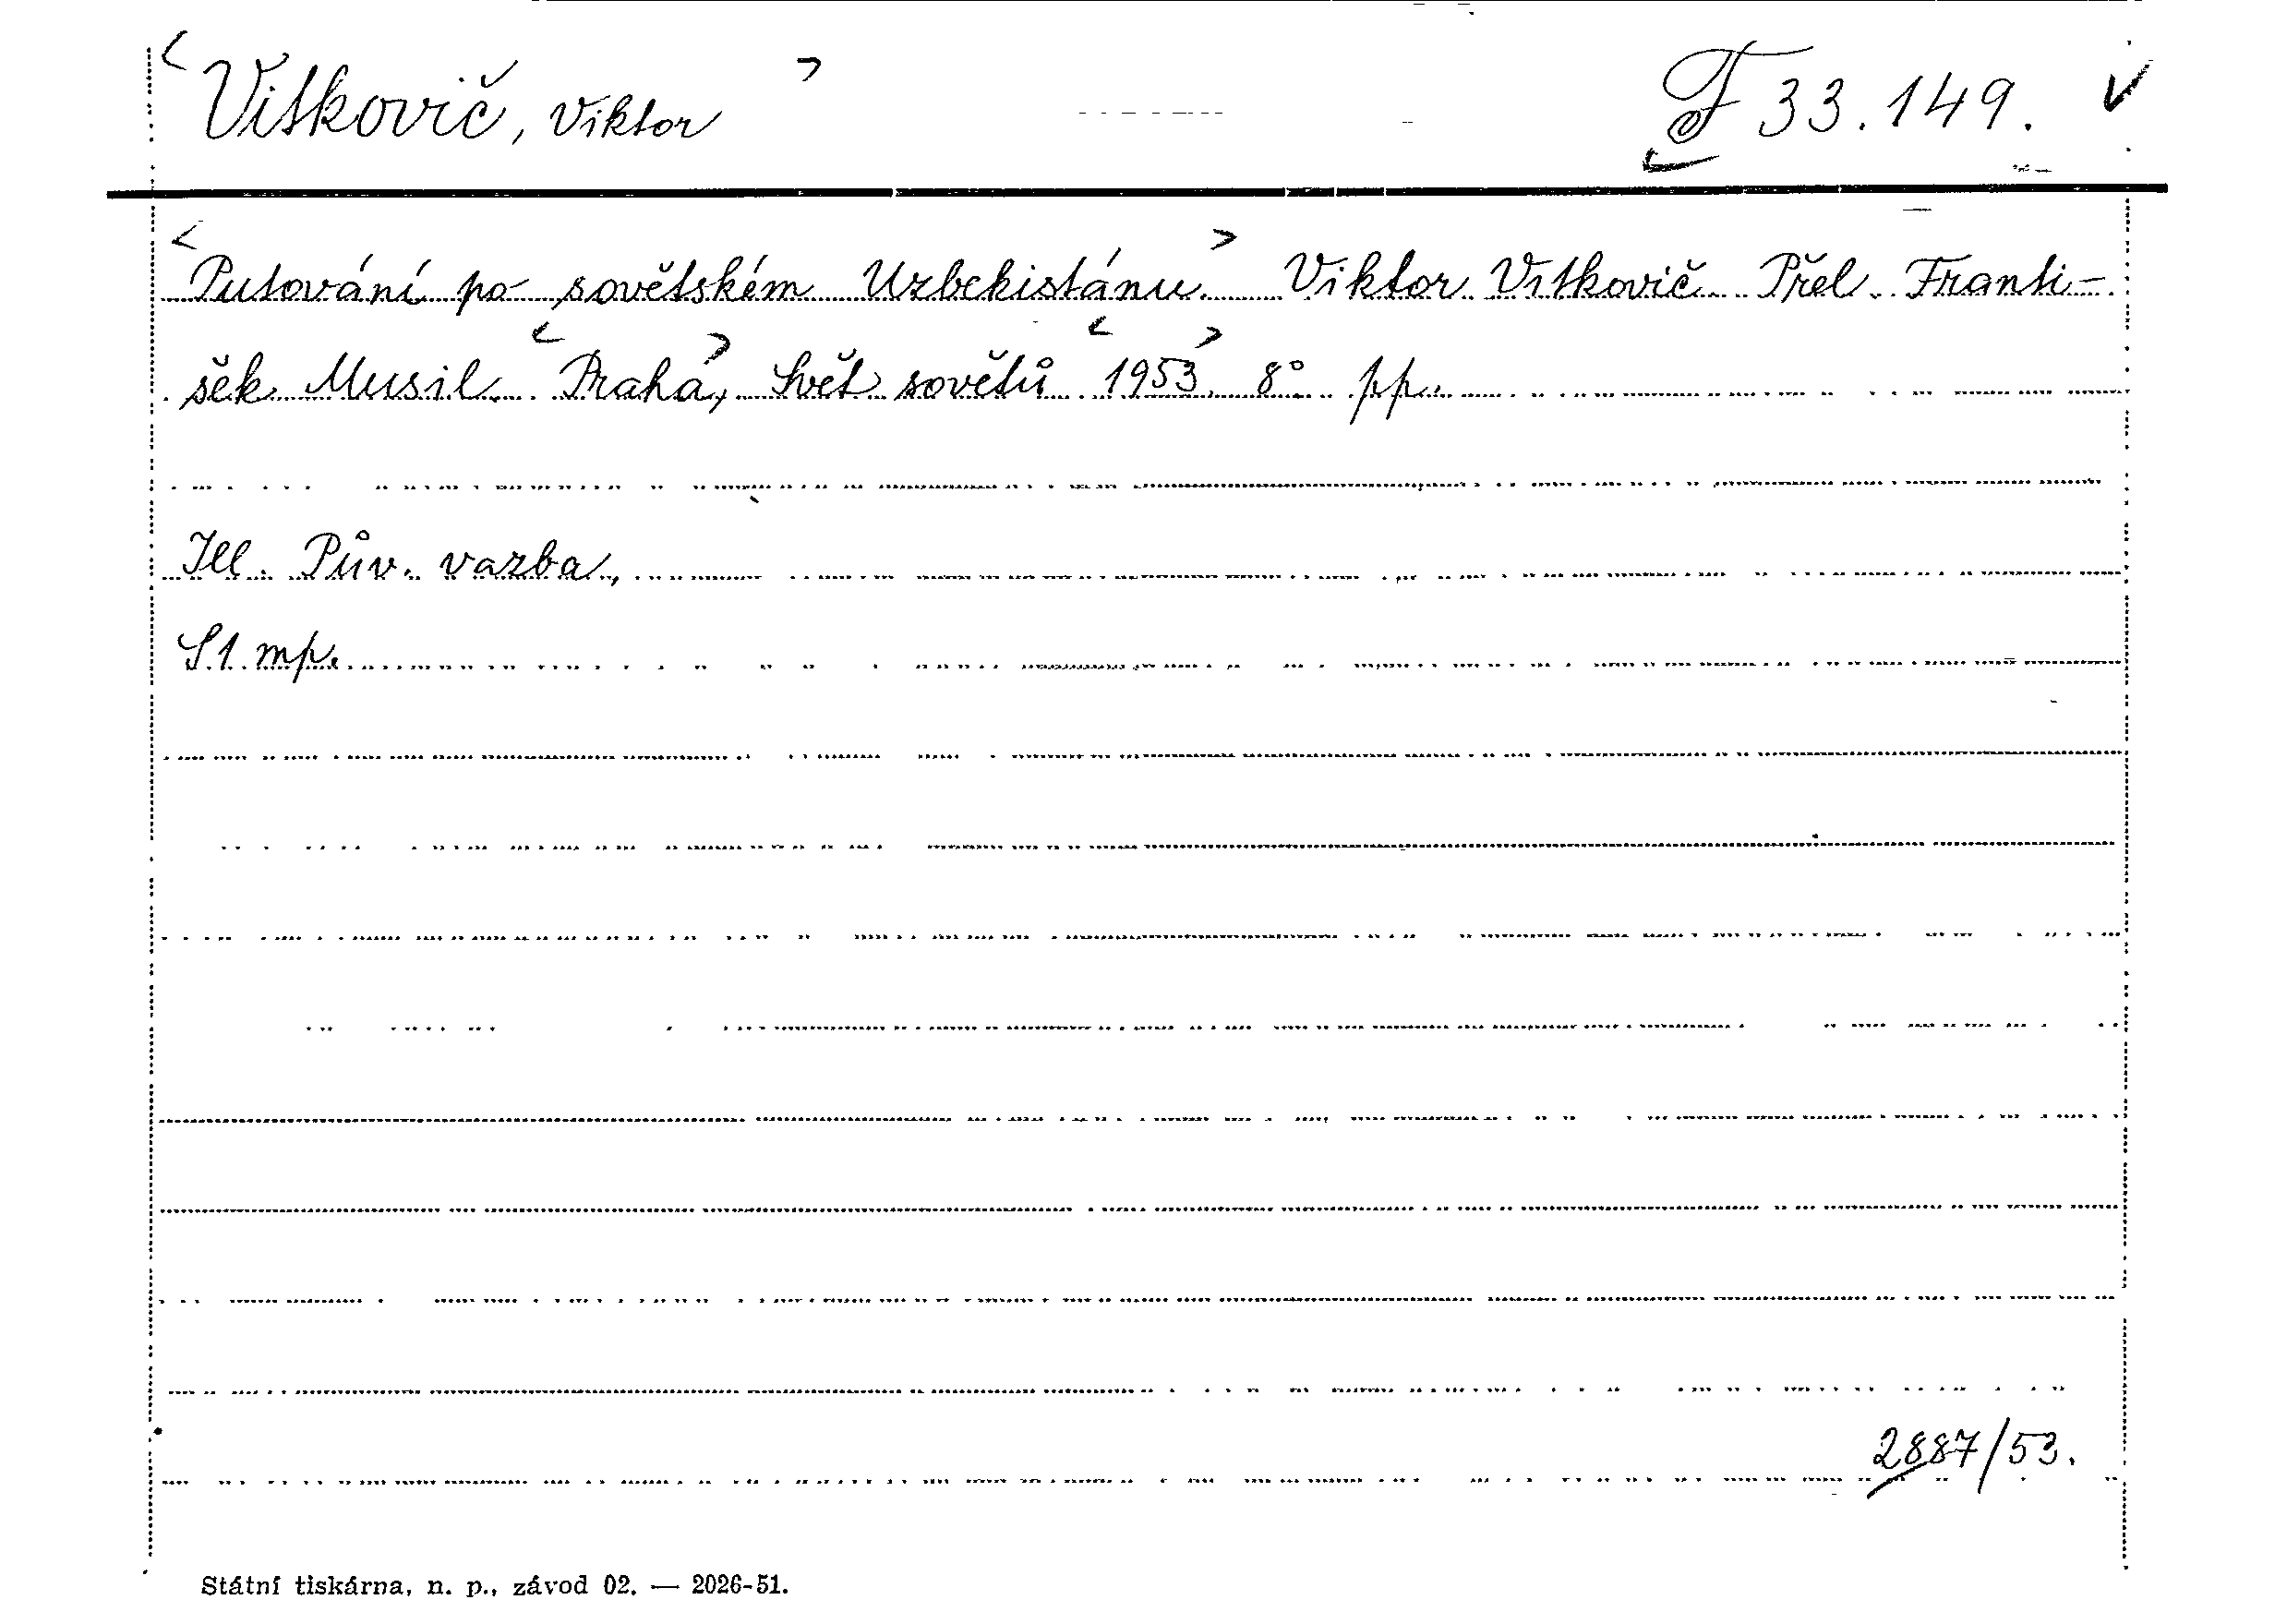 Vitkovič, Viktor F 33.149.
Putování po sovětském Uzbekistánu. Viktor Vitkovič Přel. Franti-
šek Musil. Praha, Svět sovětů 1953. 8° pp.
Ill. Pův. vazba,
S1 mp.
2887/53.
Státní tiskárna, n. p., závod 02. — 2026-51.